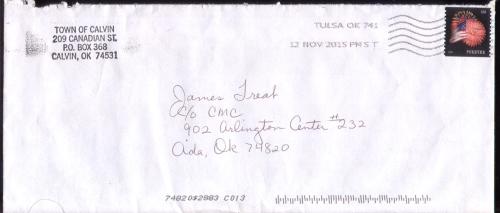 TOWN OF CALVIN
209 CANADIAN ST.
P.O. BOX 368
CALVIN, OK 74531
TULSA OK 741
12 NOV 2015 PM 5 T
FOREVER
James Treat
C/o CMC
902 Arlington Center #232
Ada, Ok 74820
74820$2883 C013